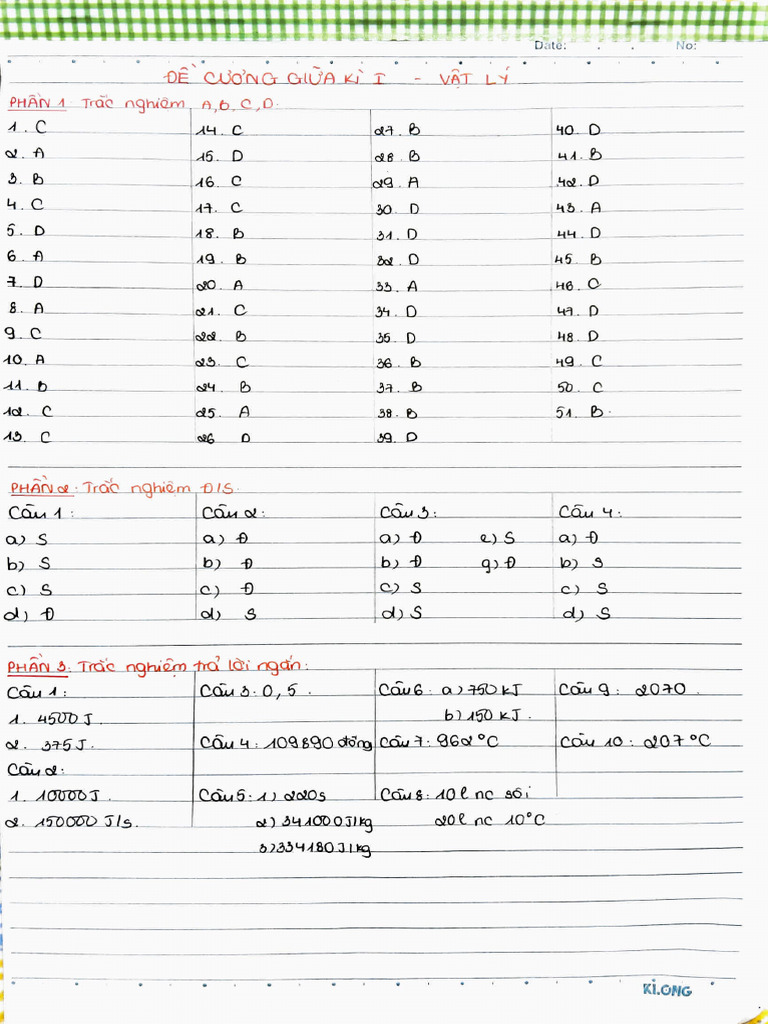 Date: . . No:
ĐỀ CƯƠNG GIỮA KÌ I - VẬT LÝ
PHẦN 1: Trắc nghiệm A, B, C, D.
1. C
2. A
3. B
4. C
5. D
6. A
7. D
8. A
9. C
10. A
11. B
12. C
13. C
14. C
15. D
16. C
17. C
18. B
19. B
20. A
21. C
22. B
23. C
24. B
25. A
26 D
27. B
28. B
29. A
30. D
31. D
32. D
33. A
34. D
35. D
36. B
37. B
38. B
39. D
40. D
41. B
42. D
43. A
44. D
45. B
46. C
47. D
48. D
49. C
50. C
51. B.
PHẦN 2: Trắc nghiệm Đ/S.
Câu 1:
a) S
b) S
c) S
d) Đ
Câu 2:
a) Đ
b) Đ
c) Đ
d) S
Câu 3:
a) Đ e) S
b) Đ g) Đ
c) S
d) S
Câu 4:
a) Đ
b) S
c) S
d) S
PHẦN 3: Trắc nghiệm trả lời ngắn:
Câu 1:
1. 4500 J.
2. 375 J.
Câu 2:
1. 10000 J.
2. 150000 J/s.
Câu 3: 0,5.
Câu 4: 109890 đồng
Câu 5: 1) 220s
2) 341000 J/kg
3) 334180 J/kg
Câu 6: a) 750 kJ
b) 150 kJ.
Câu 7: 962°C
Câu 8: 10l nc sôi
20l nc 10°C
Câu 9: 2070.
Câu 10: 207°C
Ki.ONG